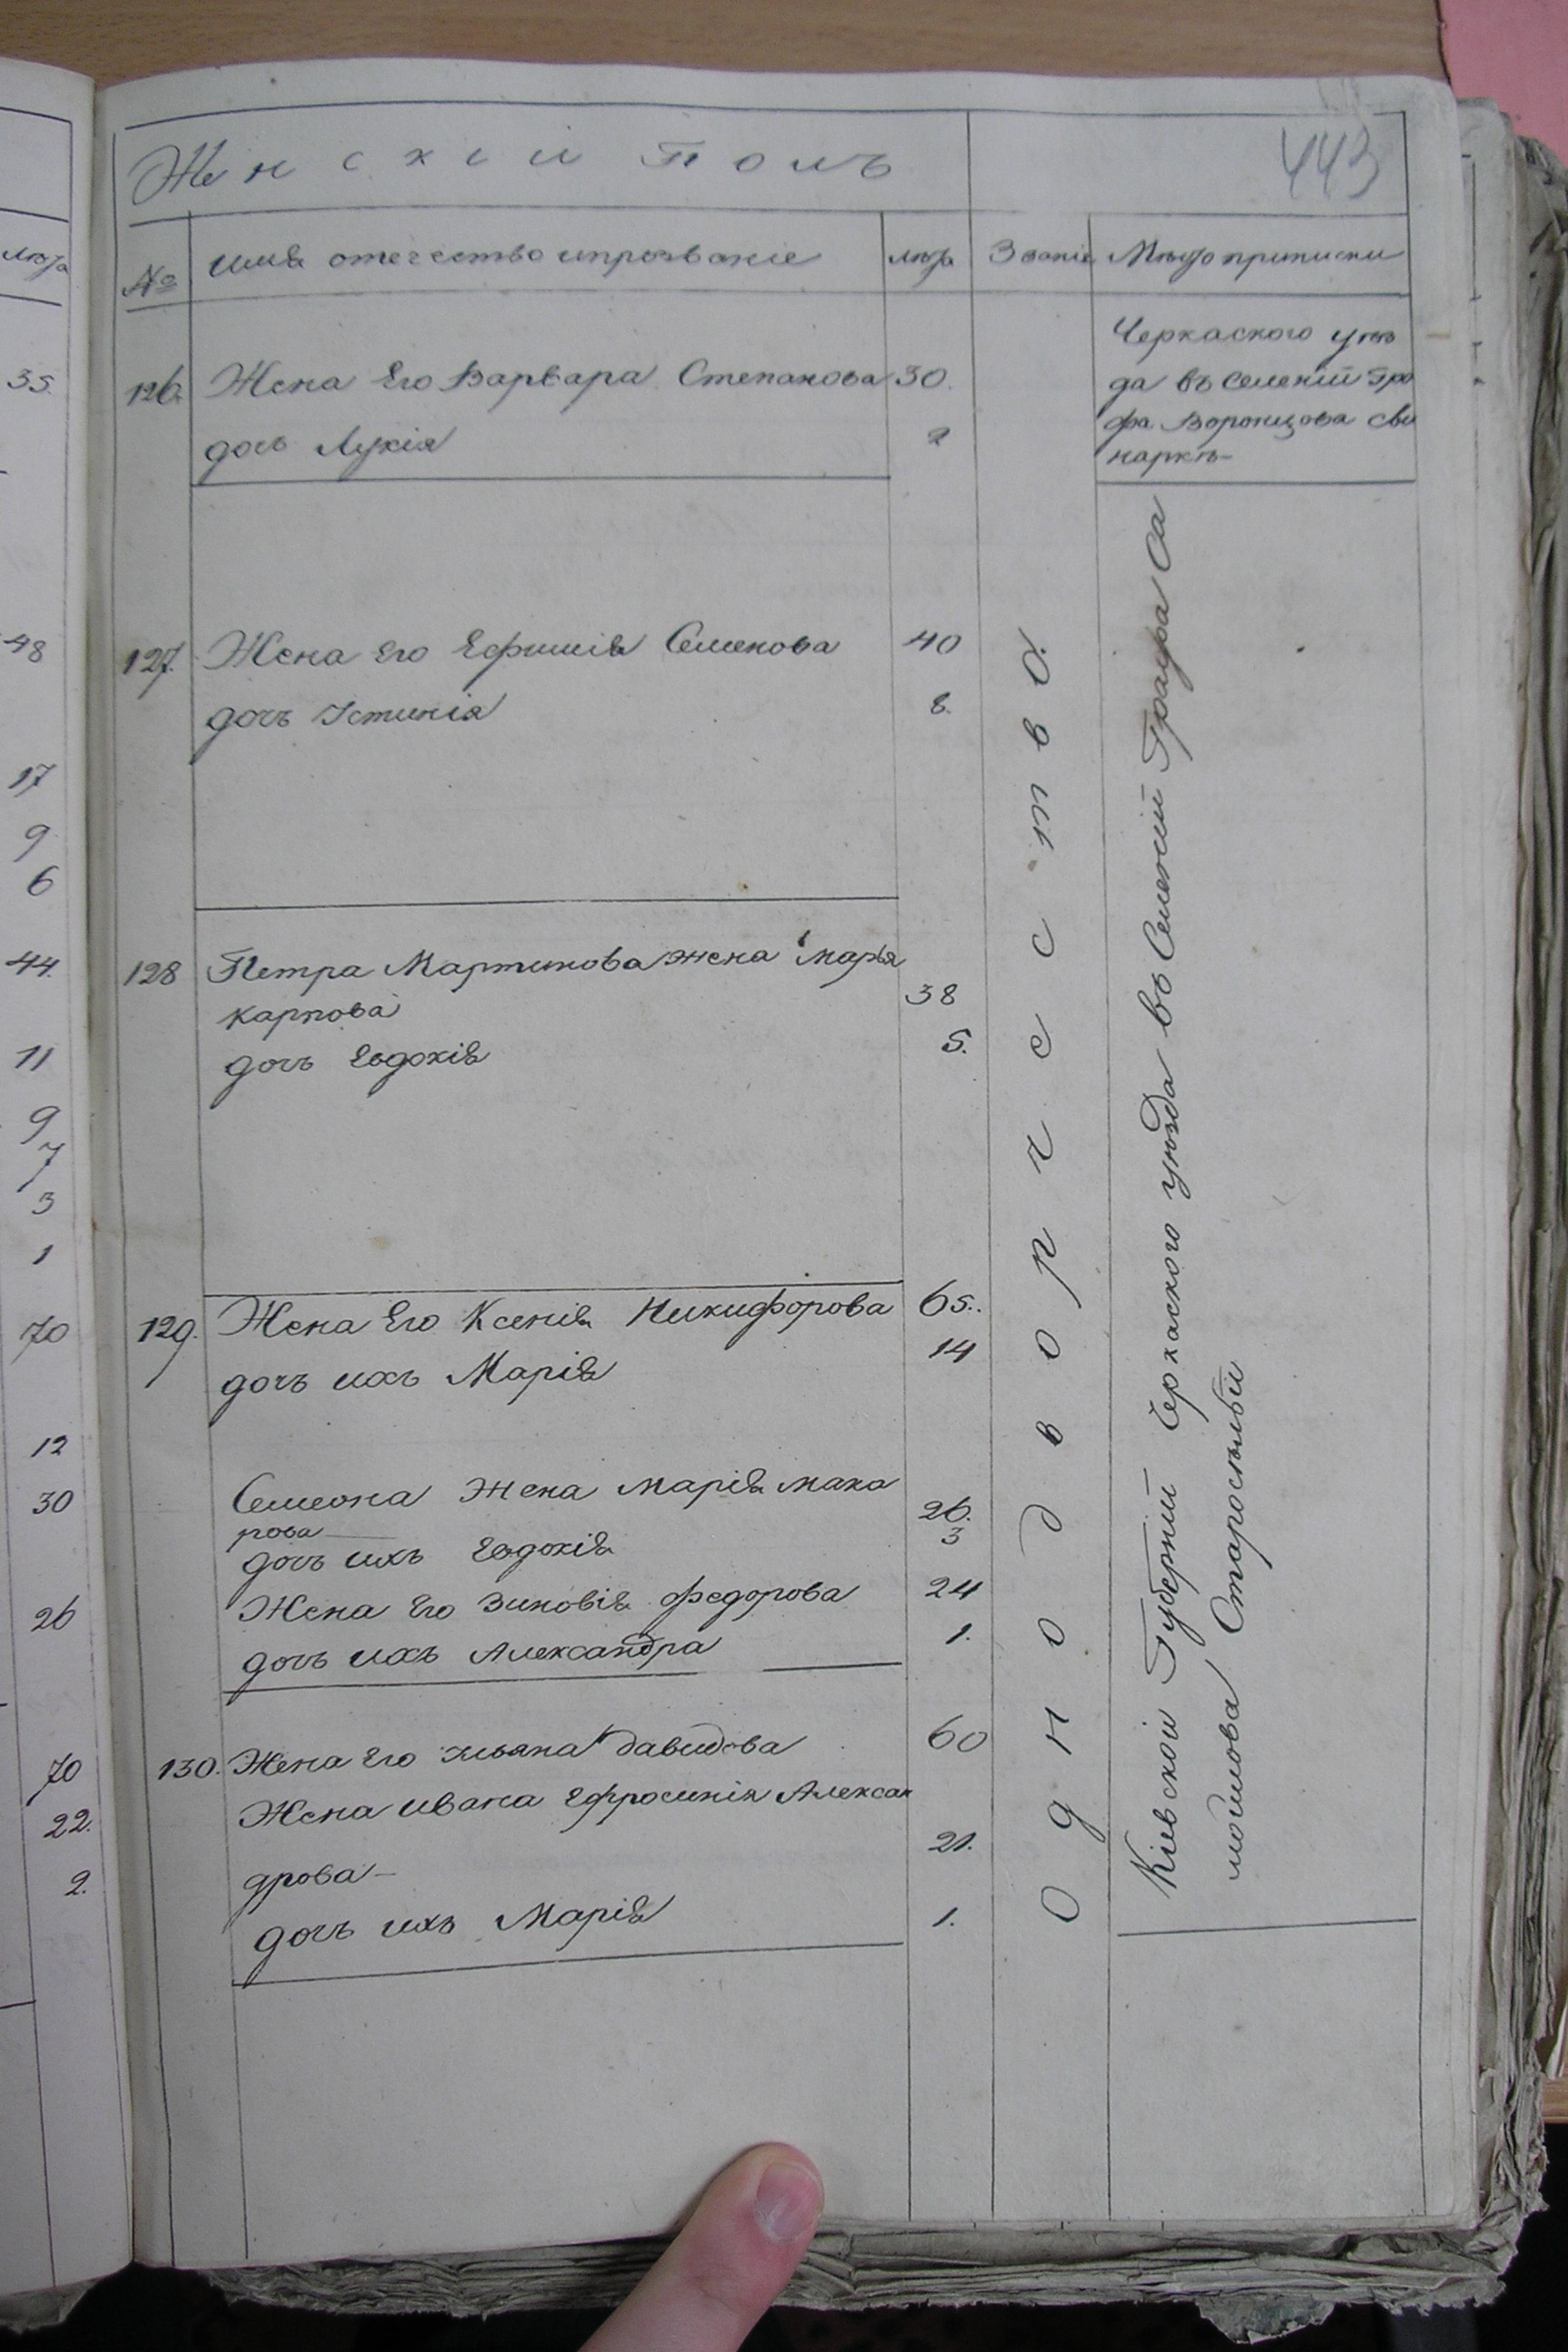 443
Женскій Полъ
№ имя отечество ипрозваніе лѣта Званіе Мѣсто приписки
126. Жена Его Варвара Степанова 30.
дочь Лукія 2
Черкаского уѣз
да въ Селеніи Гра
фа Воронцова Сви
наркѣ
127. Жена Его Ефимія Семенова 40
дочь Устинія 8.
128 Петра Мартинова жена Марья
карпова 38
дочь Евдокія 5.
129. Жена Его Ксенія Никифорова 65.
дочь ихъ Марія 14
Семеона жена Марія мака
рова 26.
дочь ихъ Евдокія 3
Жена Его Зиновія федорова 24
дочь ихъ Александра 1.
130. Жена Его Ульяна Давидова 60
Жена ивана Ефросинія Алексан
дрова 21.
дочь ихъ Марія 1.
Однодворчество.
Кіевской Губерніи Черкаского уѣзда въ Селеніи Графа Са
мойлова Старосѣльи
35.
48
17
9
6
44.
11
9
7
3
1
70
12
30
26
70
22.
2.